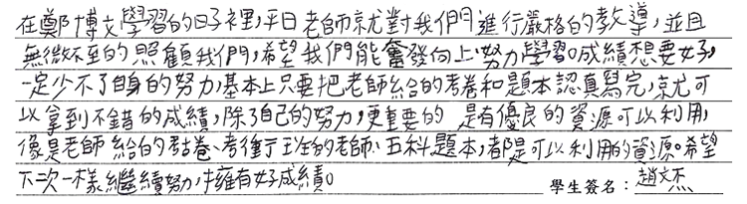 在鄭博文學習的日子裡,平日老師就對我們進行嚴格的教導,並且
無微不至的照顧我們,希望我們能奮發向上,努力學習。成績想要好,
一定少不了自身的努力,基本上只要把老師給的考卷和題本認真寫完,就可
以拿到不錯的成績,除了自己的努力,更重要的 是有優良的資源可以利用,
像是老師給的考卷、考衝班的老師、五科題本,都是可以利用的資源。希望
下次一樣繼續努力,擁有好成績。 學生簽名:趙文杰